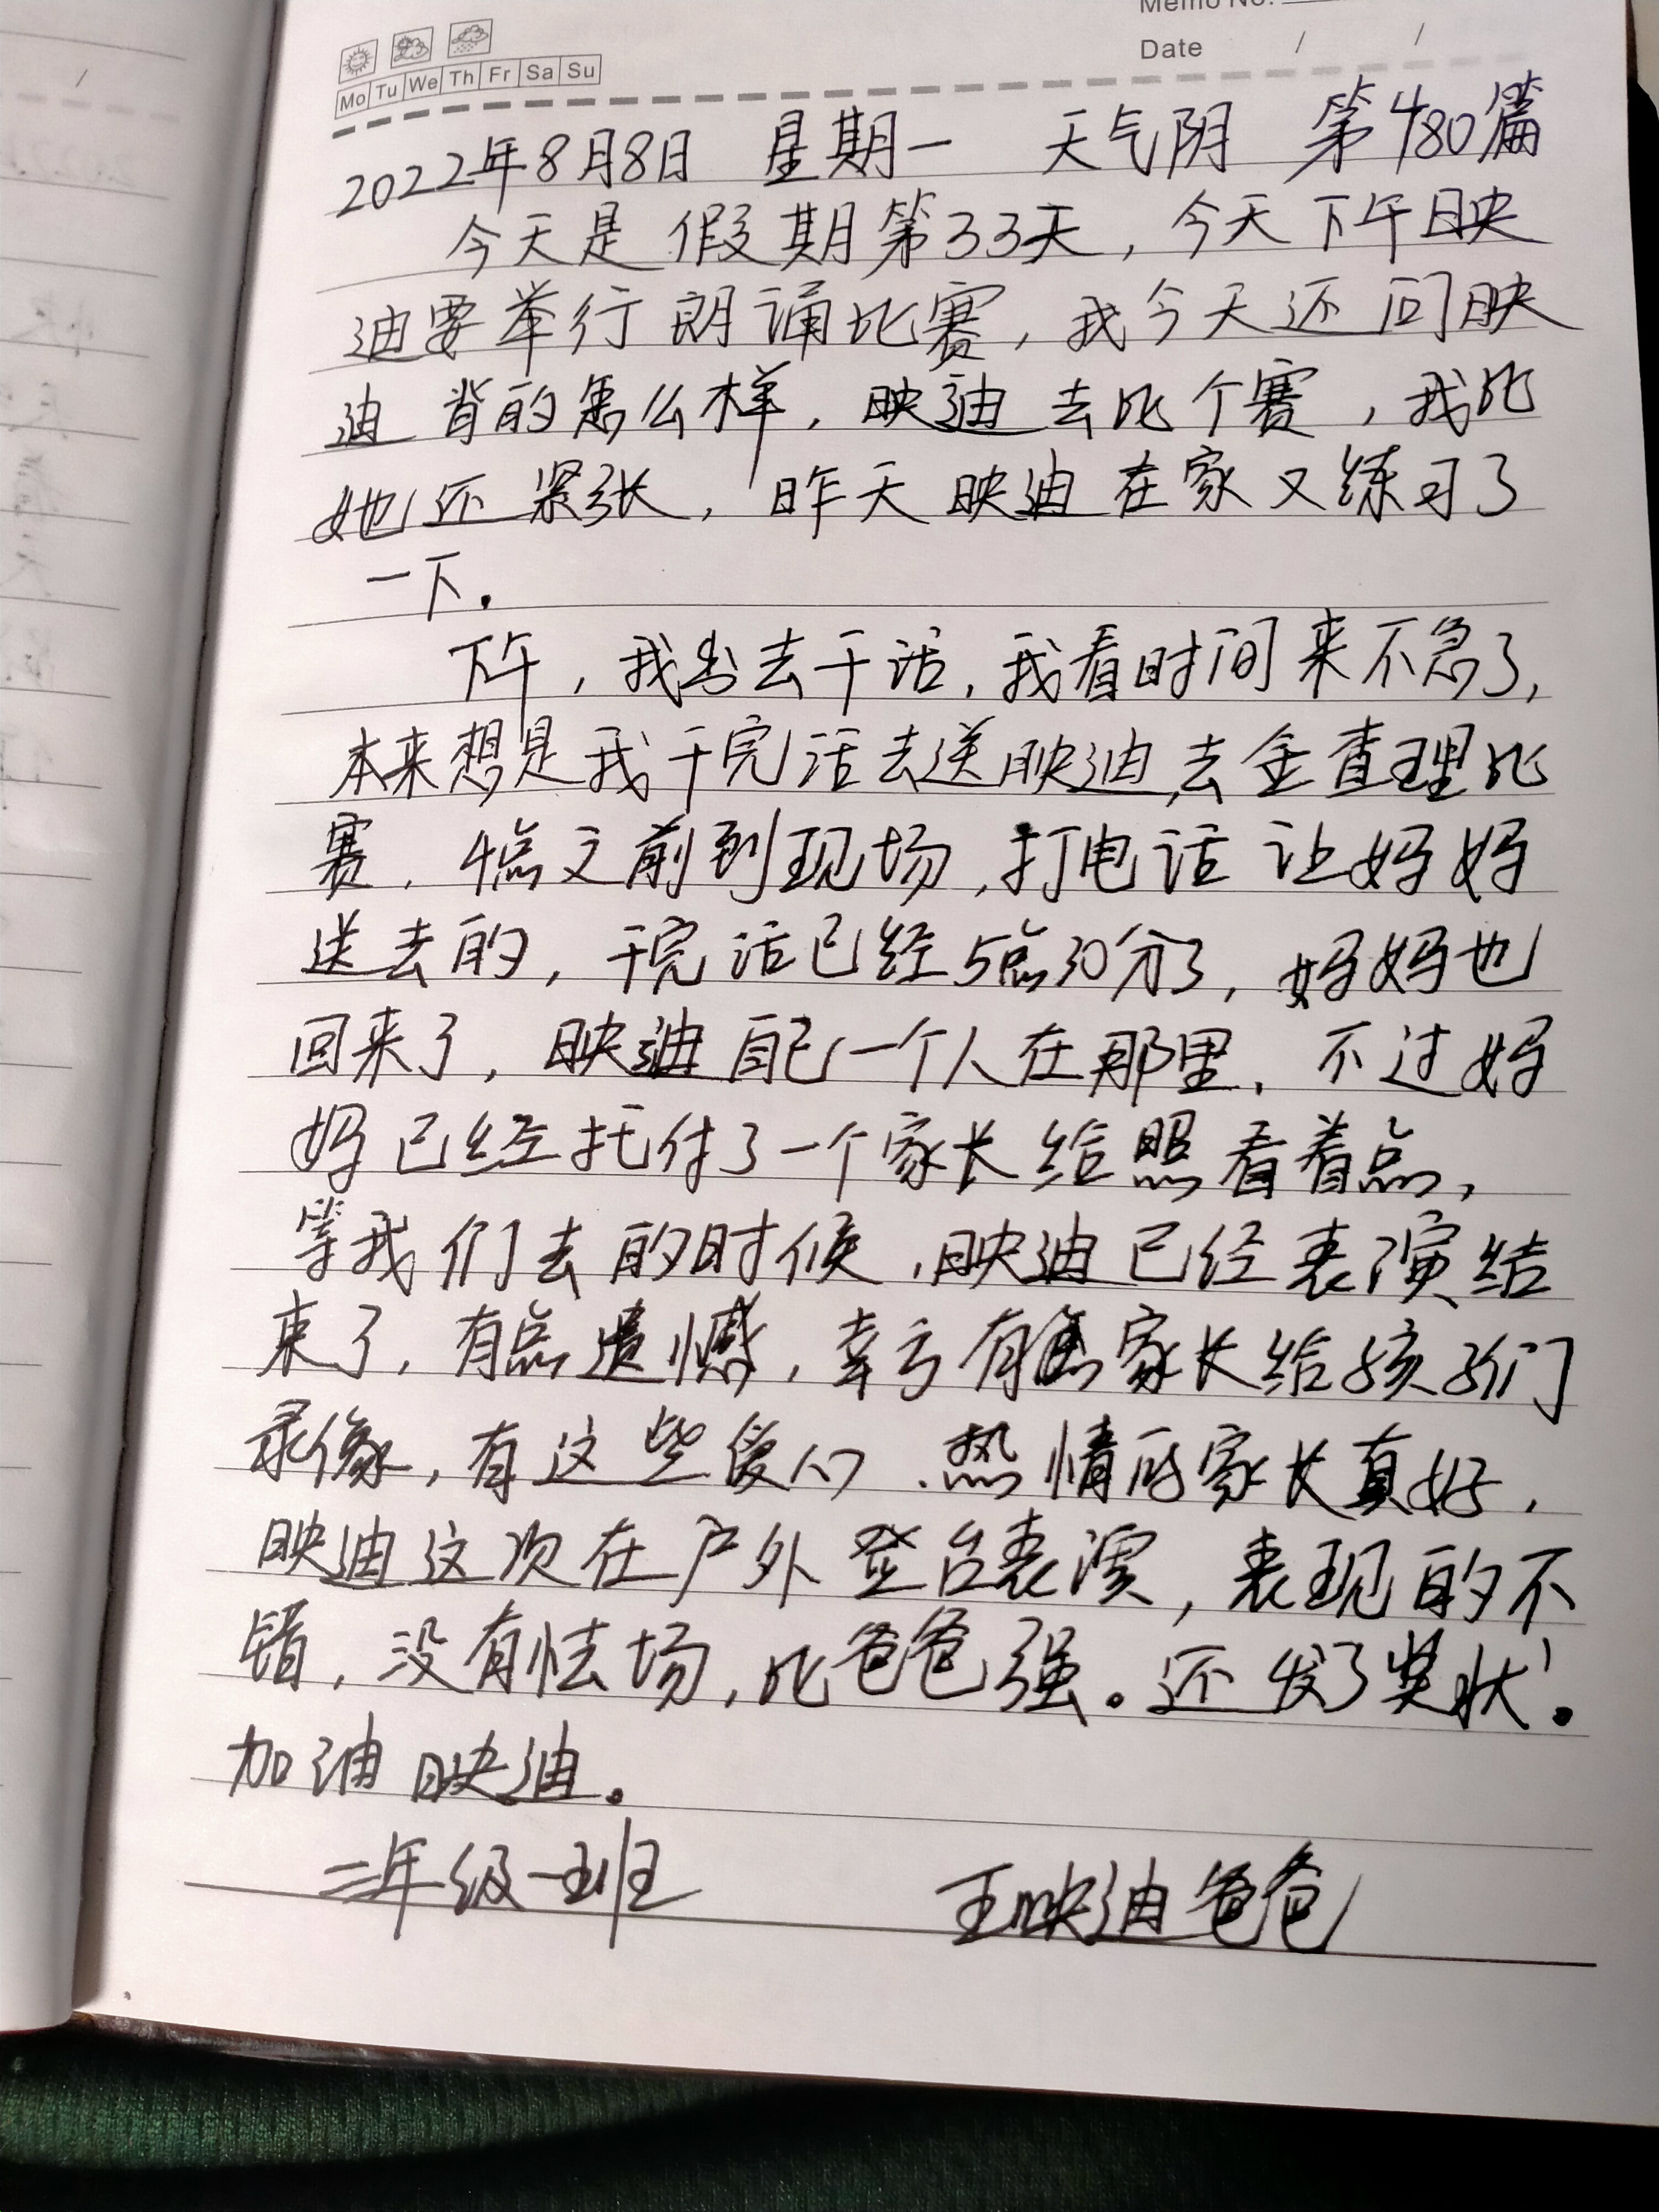 Memo No.
Date / /
Mo Tu We Th Fr Sa Su
2022年8月8日 星期一 天气阴 第480篇
今天是假期第33天,今天下午映
迪要举行朗诵比赛,我今天还问映
迪背的怎么样,映迪去比个赛,我比
她还紧张,昨天映迪在家又练习了
一下.
下午,我出去干活,我看时间来不急了,
本来想是我干完活去送映迪去金查理比
赛,4点之前到现场,打电话让妈妈
送去的,干完活已经5点30分了,妈妈也
回来了,映迪自己一个人在那里,不过妈
妈已经托付了一个家长给照看着点,
等我们去的时候,映迪已经表演结
束了,有点遗憾,幸亏有家长给孩子们
录像,有这些爱心、热情的家长真好,
映迪这次在户外登台表演,表现的不
错,没有怯场,比爸爸强。还发了奖状!。
加油映迪。
二年级一班 王映迪爸爸